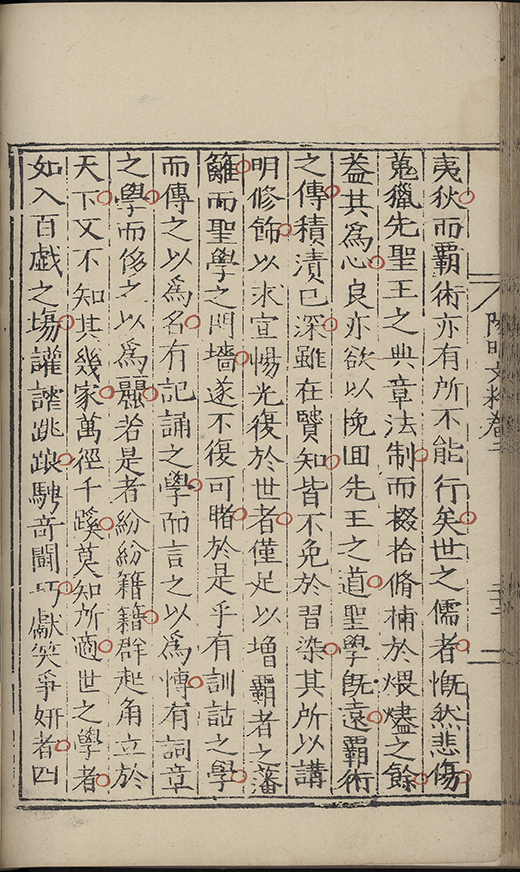 陽明文粹卷二
夷狄而霸術亦有所不能行矣世之儒者慨然悲傷
蒐獵先聖王之典章法制而掇拾脩補於煨燼之餘
葢其爲心良亦欲以挽回先王之道聖學旣遠霸術
之傳積漬已深雖在賢知皆不免於習染其所以講
明修飾以求宣暢光復於世者僅足以增霸者之藩
籬而聖學之門墻遂不復可睹於是乎有訓詁之學
而傳之以爲名有記誦之學而言之以爲愽有詞章
之學而侈之以爲麗若是者紛紛籍籍群起角立於
天下又不知其幾家萬徑千蹊莫知所適世之學者
如入百戯之塲讙謔跳踉騁奇鬪巧獻笑爭妍者四